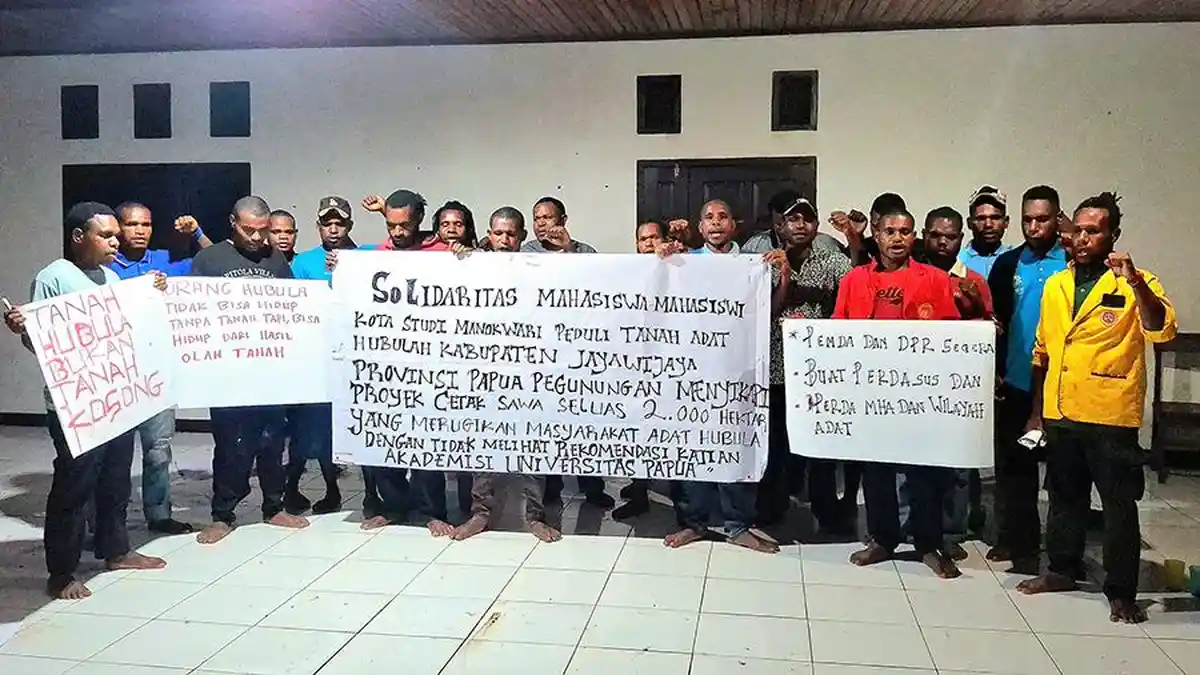 TANAH
HUBULA
BUKAN
TANAH
KOSONG
ORANG HUBULA
TIDAK BISA HIDUP
TANPA TANAH TAPI, BISA
HIDUP DARI HASIL
OLAH TANAH
PITOLA VILL
SOLIDARITAS MAHASISWA-MAHASISWI
KOTA STUDI MANOKWARI PEDULI TANAH ADAT
HUBULAH KABUPATEN JAYAWIJAYA
PROVINSI PAPUA PEGUNUNGAN MENYIKAPI
PROYEK CETAK SAWA SELUAS 2..000 HEKTAR
YANG MERUGIKAN MASYARAKAT ADAT HUBULA
DENGAN TIDAK MELIHAT REKOMENDASI KAJIAN
AKADEMISI UNIVERSITAS PAPUA"
* PEMDA DAN DPR SEGERA
- BUAT PERDASUS DAN
- PERDA MHA DAN WILAYAH
ADAT